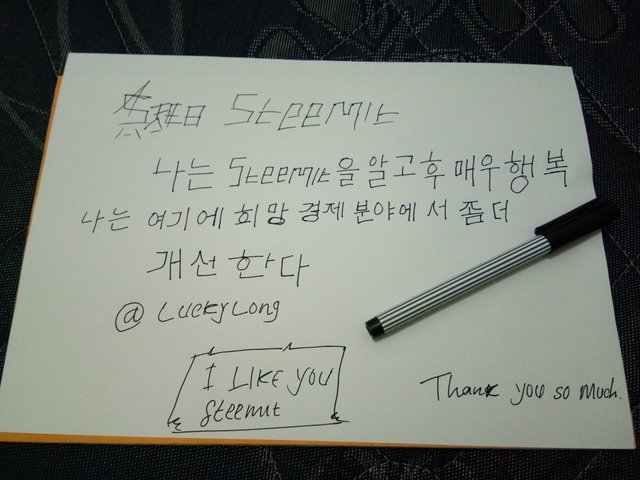 Steemit
나는 Steemit을 알고 후 매우 행복
나는 여기에 희망 경제 분야에서 좀 더
개선 한다
@ LuckyLong
I LIKE YOU
Steemit
Thank you so much.